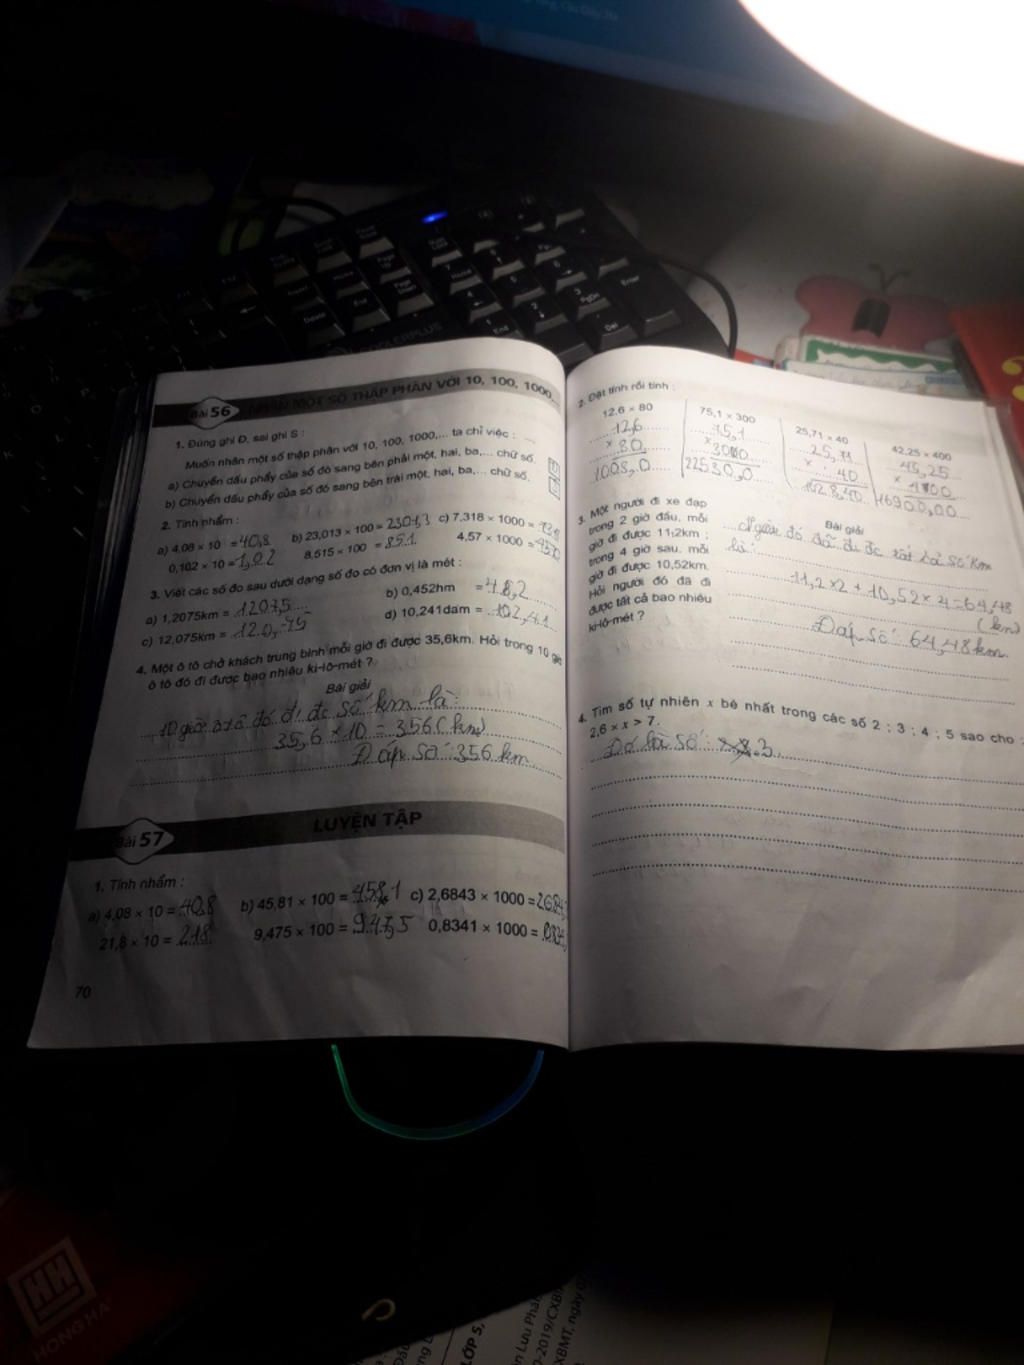 Bài 56 NHÂN MỘT SỐ THẬP PHÂN VỚI 10, 100, 1000,...
1. Đúng ghi Đ, sai ghi S :
Muốn nhân một số thập phân với 10, 100, 1000,... ta chỉ việc :
a) Chuyển dấu phẩy của số đó sang bên phải một, hai, ba,... chữ số.
b) Chuyển dấu phẩy của số đó sang bên trái một, hai, ba,... chữ số.
2. Tính nhẩm :
a) 4,08 × 10 = 40,8 b) 23,013 × 100 = 2301,3 c) 7,318 × 1000 =
0,102 × 10 = 1,02 8,515 × 100 = 851 4,57 × 1000 =
3. Viết các số đo sau dưới dạng số đo có đơn vị là mét :
a) 1,2075km = 1207,5 b) 0,452hm =
c) 12,075km = d) 10,241dam = 102,41
4. Một ô tô chở khách trung bình mỗi giờ đi được 35,6km. Hỏi trong 10 giờ
ô tô đó đi được bao nhiêu ki-lô-mét ?
Bài giải
10 giờ ô tô đó đi đc số km là:
35,6 × 10 = 356 (km)
Đáp số: 356 km
Bài 57 LUYỆN TẬP
1. Tính nhẩm :
a) 4,08 × 10 = 40,8 b) 45,81 × 100 = 458,1 c) 2,6843 × 1000 =
21,8 × 10 = 218 9,475 × 100 = 947,5 0,8341 × 1000 =
70
2. Đặt tính rồi tính :
12,6 × 80 75,1 × 300 25,71 × 40 42,25 × 400
12,6 75,1 25,71
× 80 × 40
1008,0 22530,0 16900,00
3. Một người đi xe đạp
trong 2 giờ đầu, mỗi
giờ đi được 11,2km ;
trong 4 giờ sau, mỗi
giờ đi được 10,52km.
Hỏi người đó đã đi
được tất cả bao nhiêu
ki-lô-mét ?
Bài giải
Người đó đã đi đc tất cả số km
là:
11,2 × 2 + 10,52 × 4 = 64,48
(km)
Đáp số: 64,48 km
4. Tìm số tự nhiên x bé nhất trong các số 2 ; 3 ; 4 ; 5 sao cho :
2,6 × x > 7.
Đó là số: 3
Home
Page Up
Delete
End
Page Down
Enter
PgDn
Del
HH
HONG HA
LỚP 5,